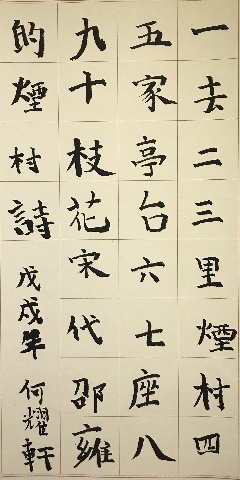 一去二三里煙村四
五家亭台六七座八
九十枝花宋代邵雍
的煙村詩戊戌年何耀軒